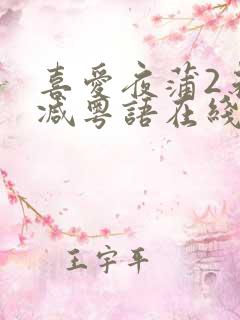 喜愛夜蒲2
减粵語在綫
王宇平